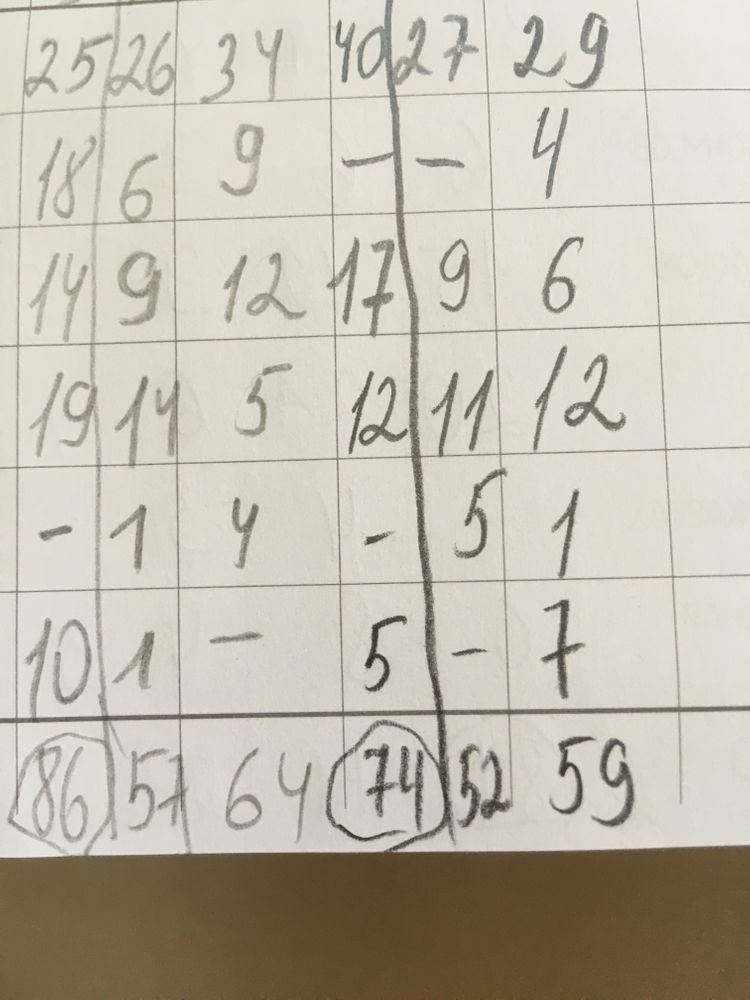 25 26 34 40 27 29
18 6 9 - - 4
14 9 12 17 9 6
19 14 5 12 11 12
- 1 4 - 5 1
10 1 - 5 - 7
86 57 64 74 52 59